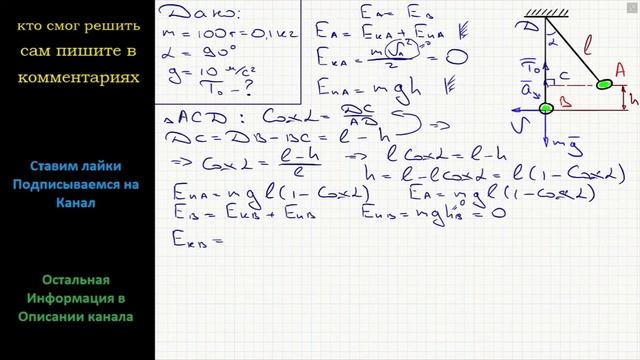 кто смог решить
сам пишите в
комментариях
Ставим лайки
Подписываемся на
Канал
Остальная
Информация в
Описании канала
Дано:
m = 100 г = 0,1 кг
α = 90°
g = 10 м/с²
T₀ - ?
E_A = E_B
E_A = E_кA + E_пA
E_кA = mυ_A²/2 = 0
E_пA = mgh
△ACD : Cosα = DC/AD ⇒
DC = DB - BC = l - h
⇒ Cosα = (l-h)/l ⇒ l Cosα = l - h
h = l - l Cosα = l (1 - Cosα)
E_пA = mgl(1 - Cosα) E_A = mgl(1 - Cosα)
E_B = E_кB + E_пB E_пB = mgh_B = 0
E_кB =
D
α
l
A
T₀
C
a
B
h
υ
mg